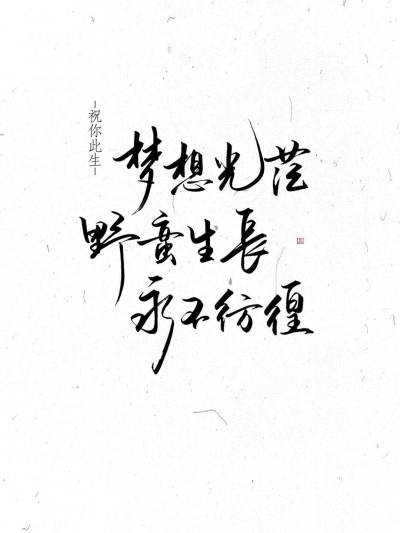 -祝你此生-
梦想光芒
野蛮生長
永不彷徨